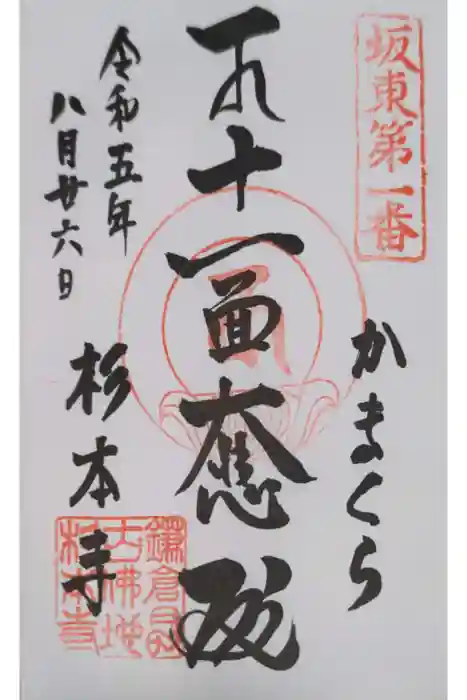 坂東第一番
かまくら
十一面大悲殿
令和五年
八月廿六日
杉本寺
鎌倉最
古佛地
杉本寺